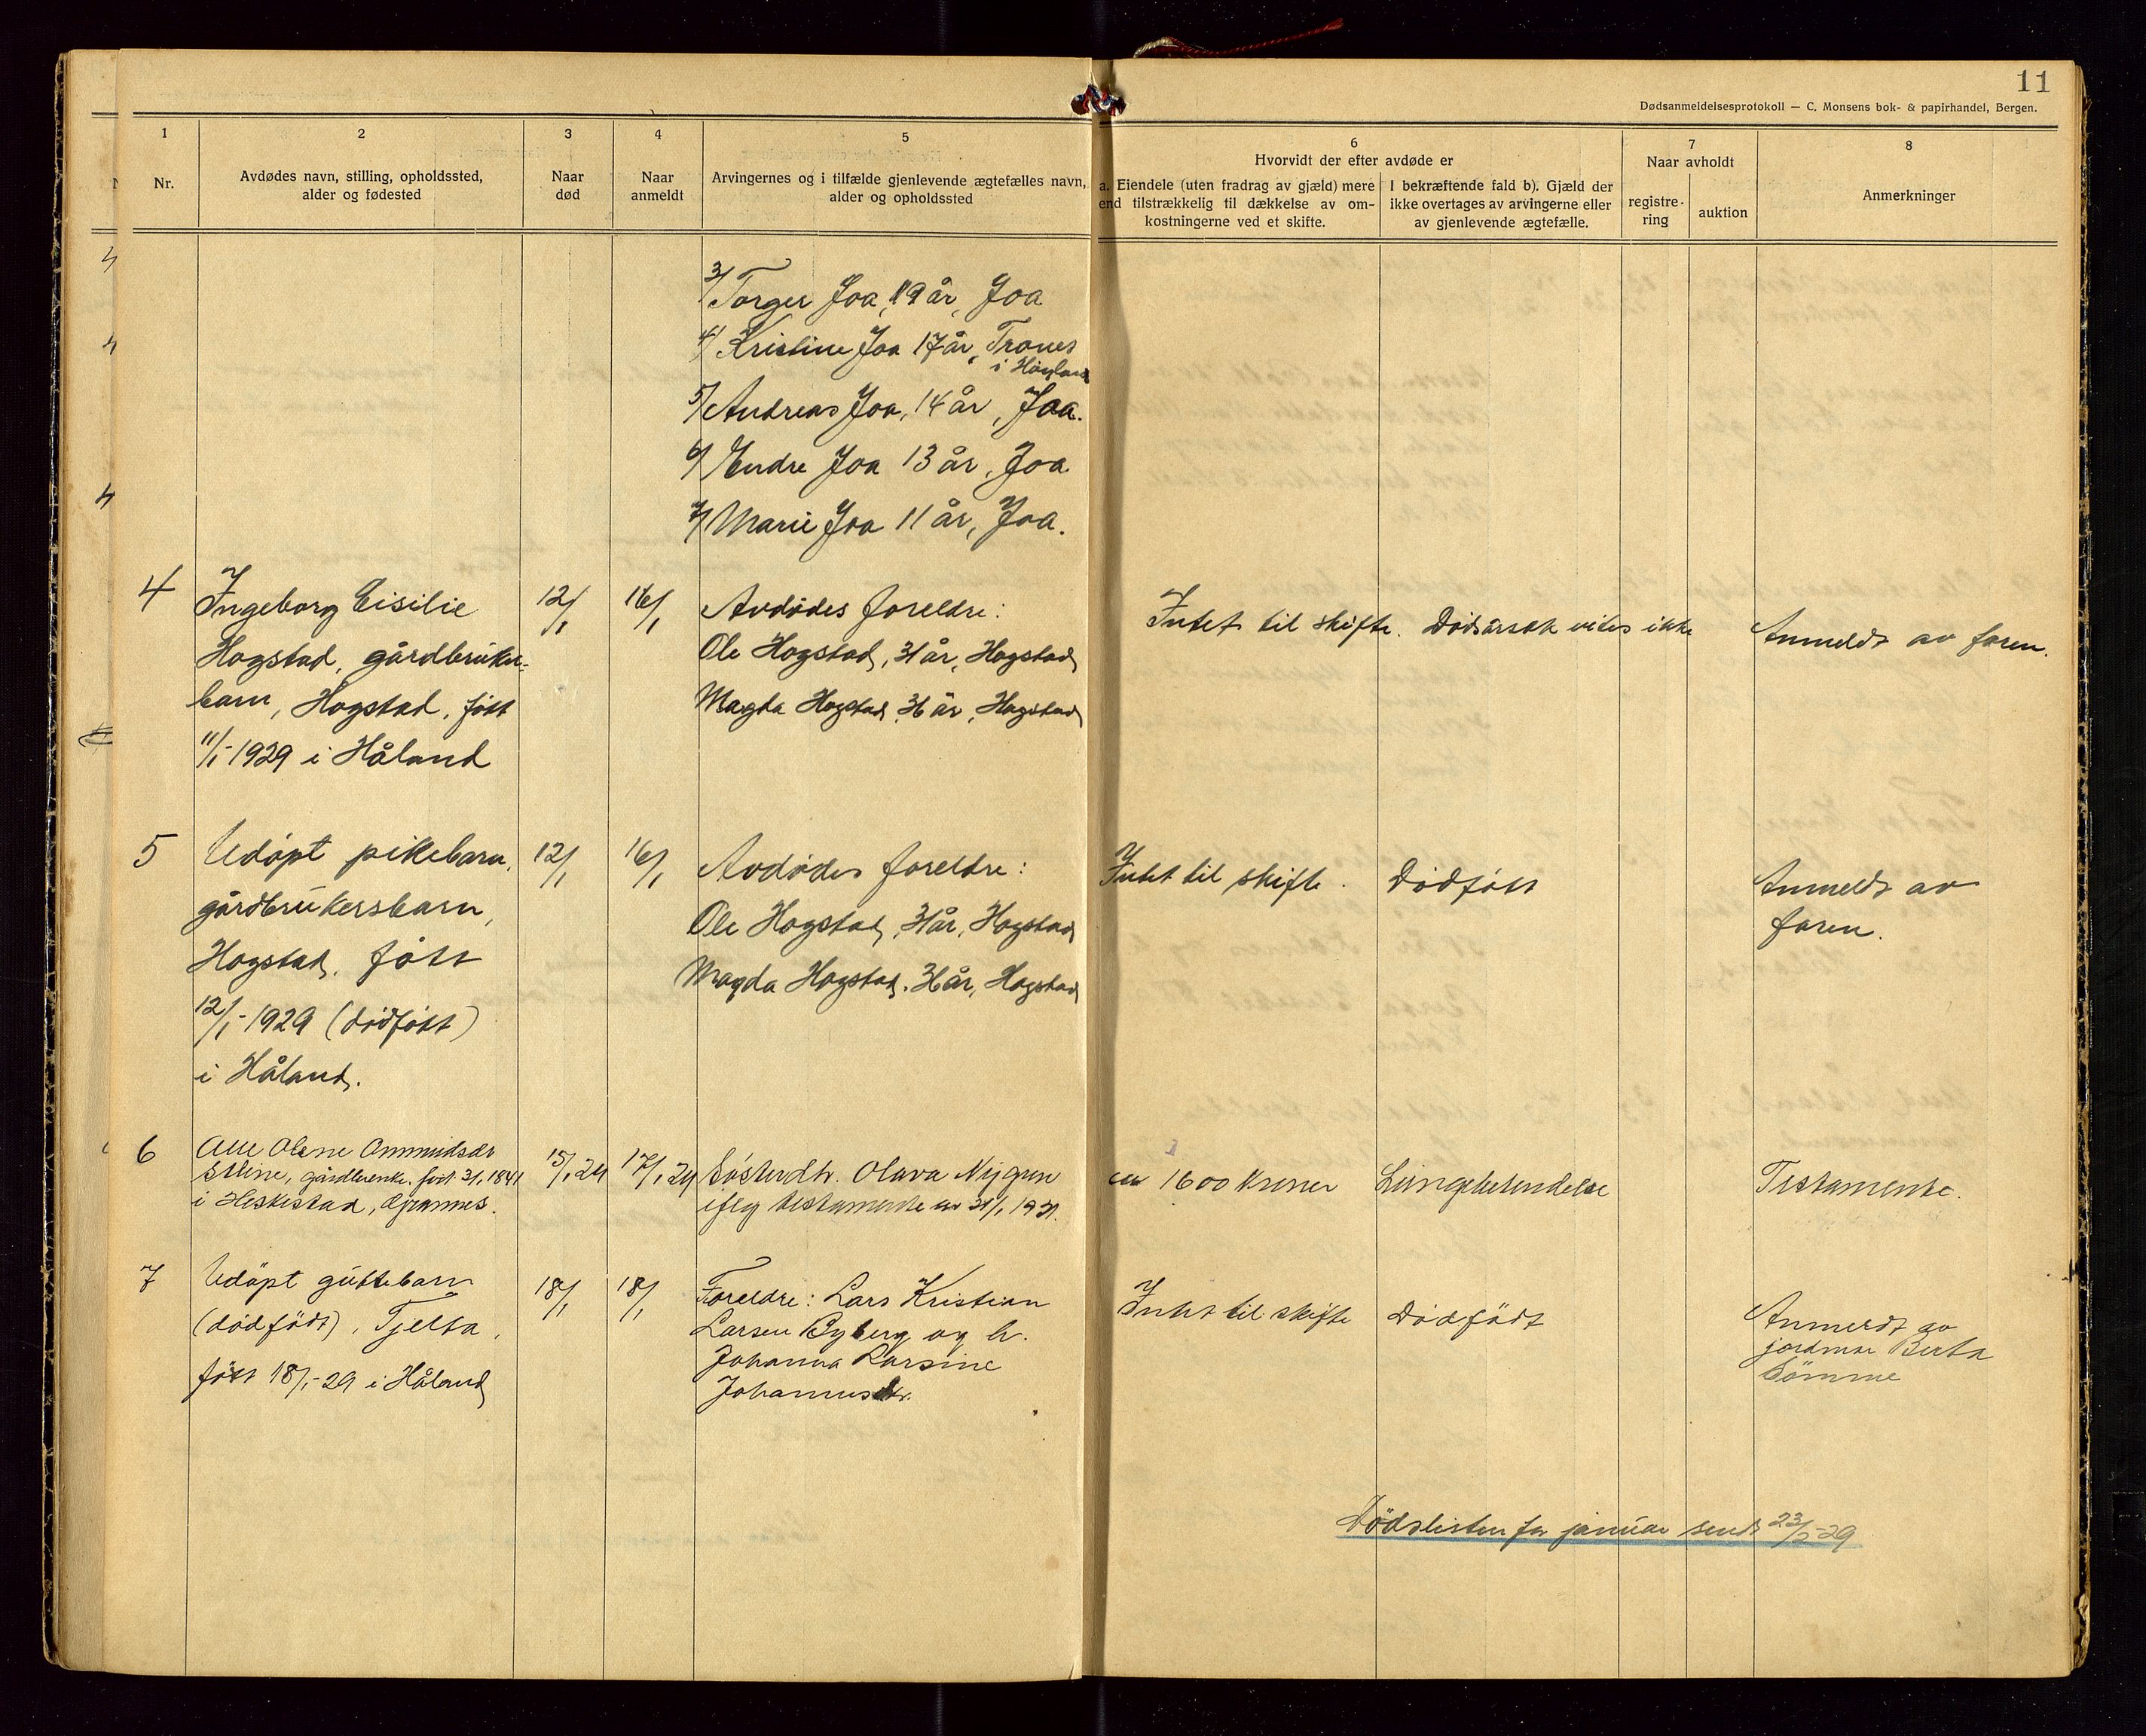 11
Dødsanmeldelsesprotokoll — C. Monsens bok- & papirhandel, Bergen.
1
Nr.
2
Avdødes navn, stilling, opholdssted,
alder og fødested
3
Naar
død
4
Naar
anmeldt
5
Arvingernes og i tilfælde gjenlevende ægtefælles navn,
alder og opholdssted
6
Hvorvidt der efter avdøde er
a. Eiendele (uten fradrag av gjæld) mere
end tilstrækkelig til dækkelse av om-
kostningerne ved et skifte.
I bekræftende fald b). Gjæld der
ikke overtages av arvingerne eller
av gjenlevende ægtefælle.
7
Naar avholdt
registre-
ring
auktion
8
Anmerkninger
3/ Torger Joa, 19 år, Joa
4/ Kristine Joa 17 år, Trones
i Høyland
5/ Andreas Joa, 14 år, Joa.
6/ Endre Joa 13 år, Joa
7/ Marie Joa 11 år, Joa.
4
Ingeborg Eisilie
Hogstad, gårdbruker-
barn, Hogstad, født
11/1-1929 i Håland
12/1
16/1
Avdødes foreldre:
Ole Hogstad, 31 år, Hogstad
Magda Hogstad, 36 år, Hogstad
Intet til skifte.
Dødsårsak vites ikke
Anmeldt av faren.
5
Udøpt pikebarn,
gårdbrukersbarn,
Hogstad, født
12/1-1929 (dødfødt)
i Håland.
12/1
16/1
Avdødes foreldre:
Ole Hogstad, 31 år, Hogstad
Magda Hogstad, 36 år, Hogstad
Intet til skifte.
Dødfødt
Anmeldt av
faren.
6
Olene
gårdbrenke. født 31/1 1841
i Heskestad,
15/1 29
17/1 29
Søsterdtr. Olava Nygren
iflg testamente av 31/1 1921.
ca 1600 kroner
Lungebetendelse
Testamente.
7
Udøpt guttebarn
(dødfødt), Tjelta,
født 18/1-29 i Håland
18/1
18/1
Foreldre: Lars Kristian
Larsen Byberg og h.
Johanna Larsine
Johannesdtr.
Intet til skifte
Dødfødt
Anmeldt av
jordmor Berta
Sömme
Dödslisten for januar sendt 23/2-29